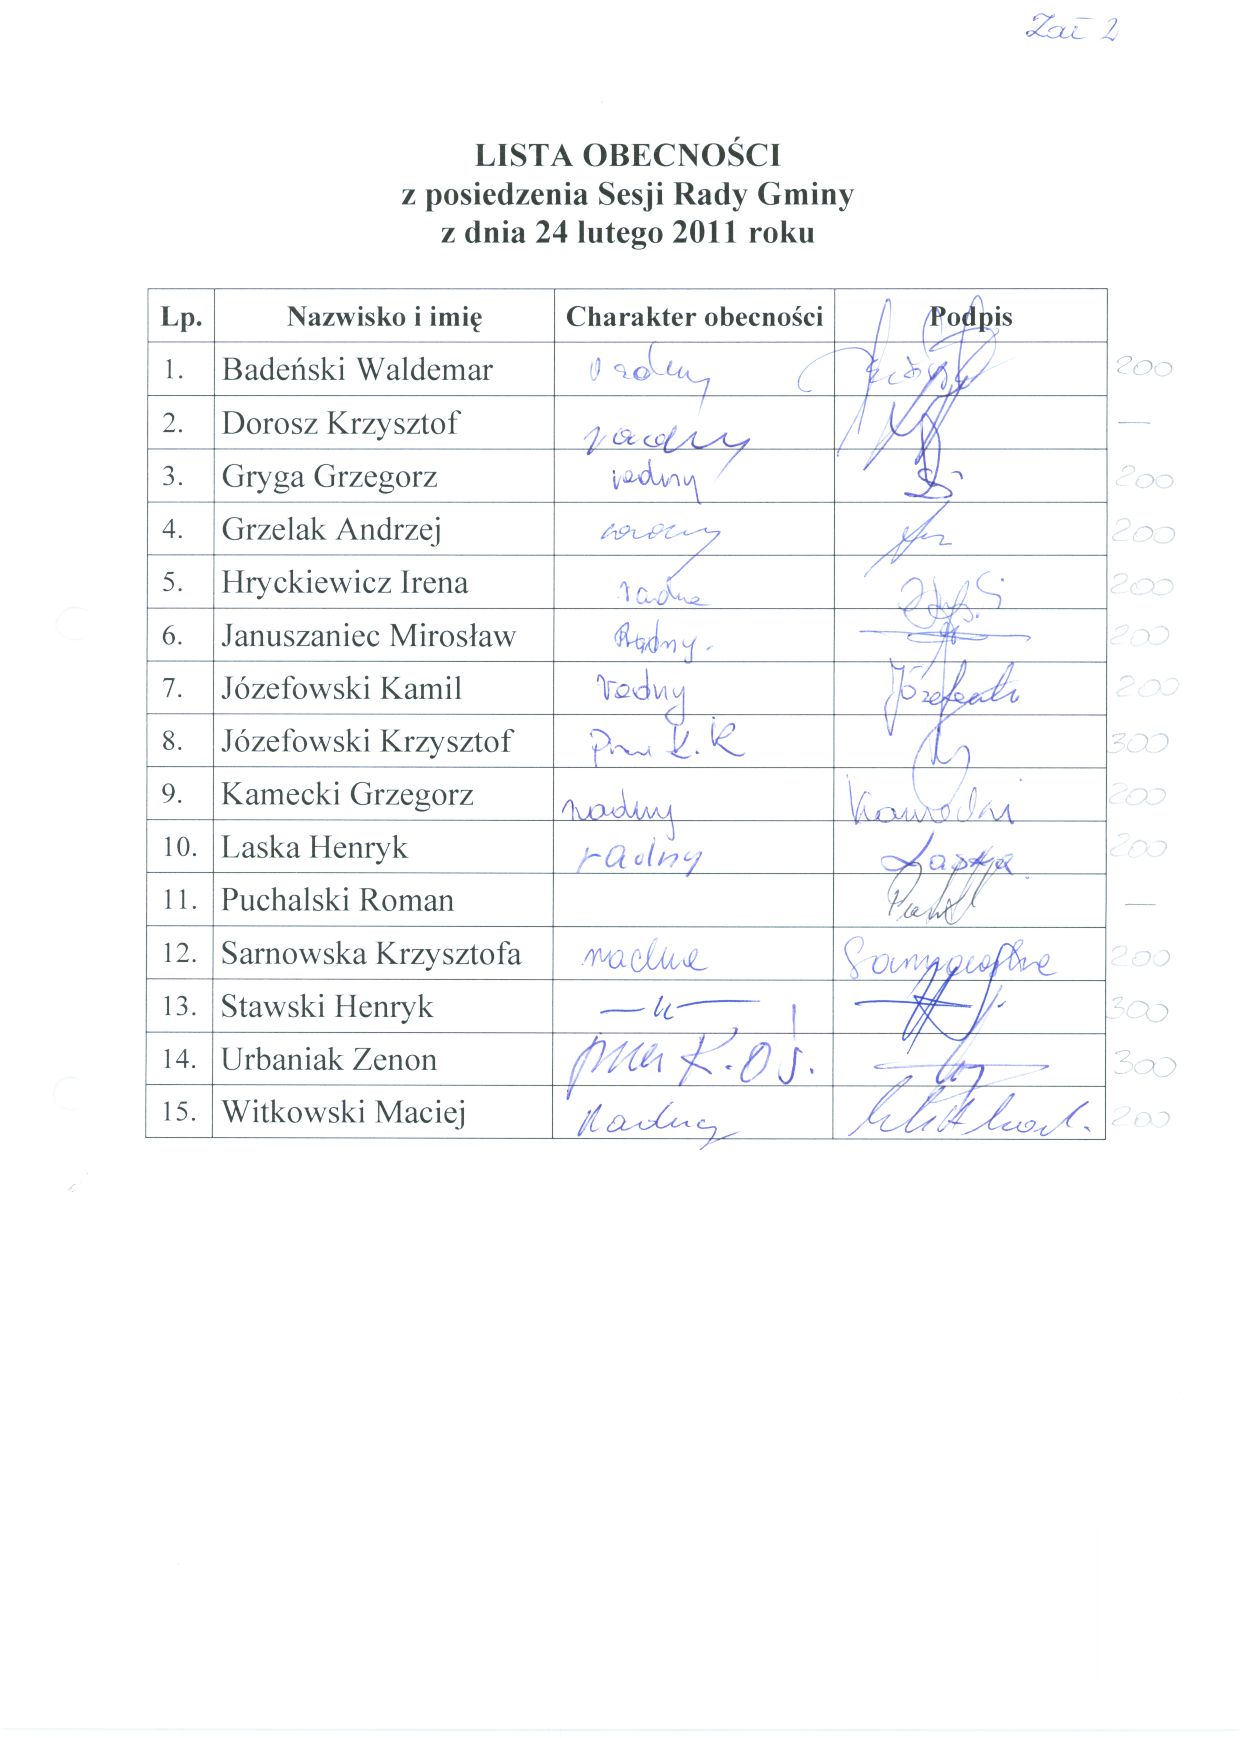 Zał 2
LISTA OBECNOŚCI
z posiedzenia Sesji Rady Gminy
z dnia 24 lutego 2011 roku
Lp. Nazwisko i imię Charakter obecności Podpis
1. Badeński Waldemar radny 200
2. Dorosz Krzysztof radny —
3. Gryga Grzegorz radny 200
4. Grzelak Andrzej radny 200
5. Hryckiewicz Irena radna 200
6. Januszaniec Mirosław Radny. 200
7. Józefowski Kamil radny Józefowski 200
8. Józefowski Krzysztof K.R 300
9. Kamecki Grzegorz radny Kamecki 200
10. Laska Henryk radny Laska 200
11. Puchalski Roman —
12. Sarnowska Krzysztofa radna Sarnowska 200
13. Stawski Henryk —"— 300
14. Urbaniak Zenon K.OŚ. 300
15. Witkowski Maciej Radny Witkowski 200